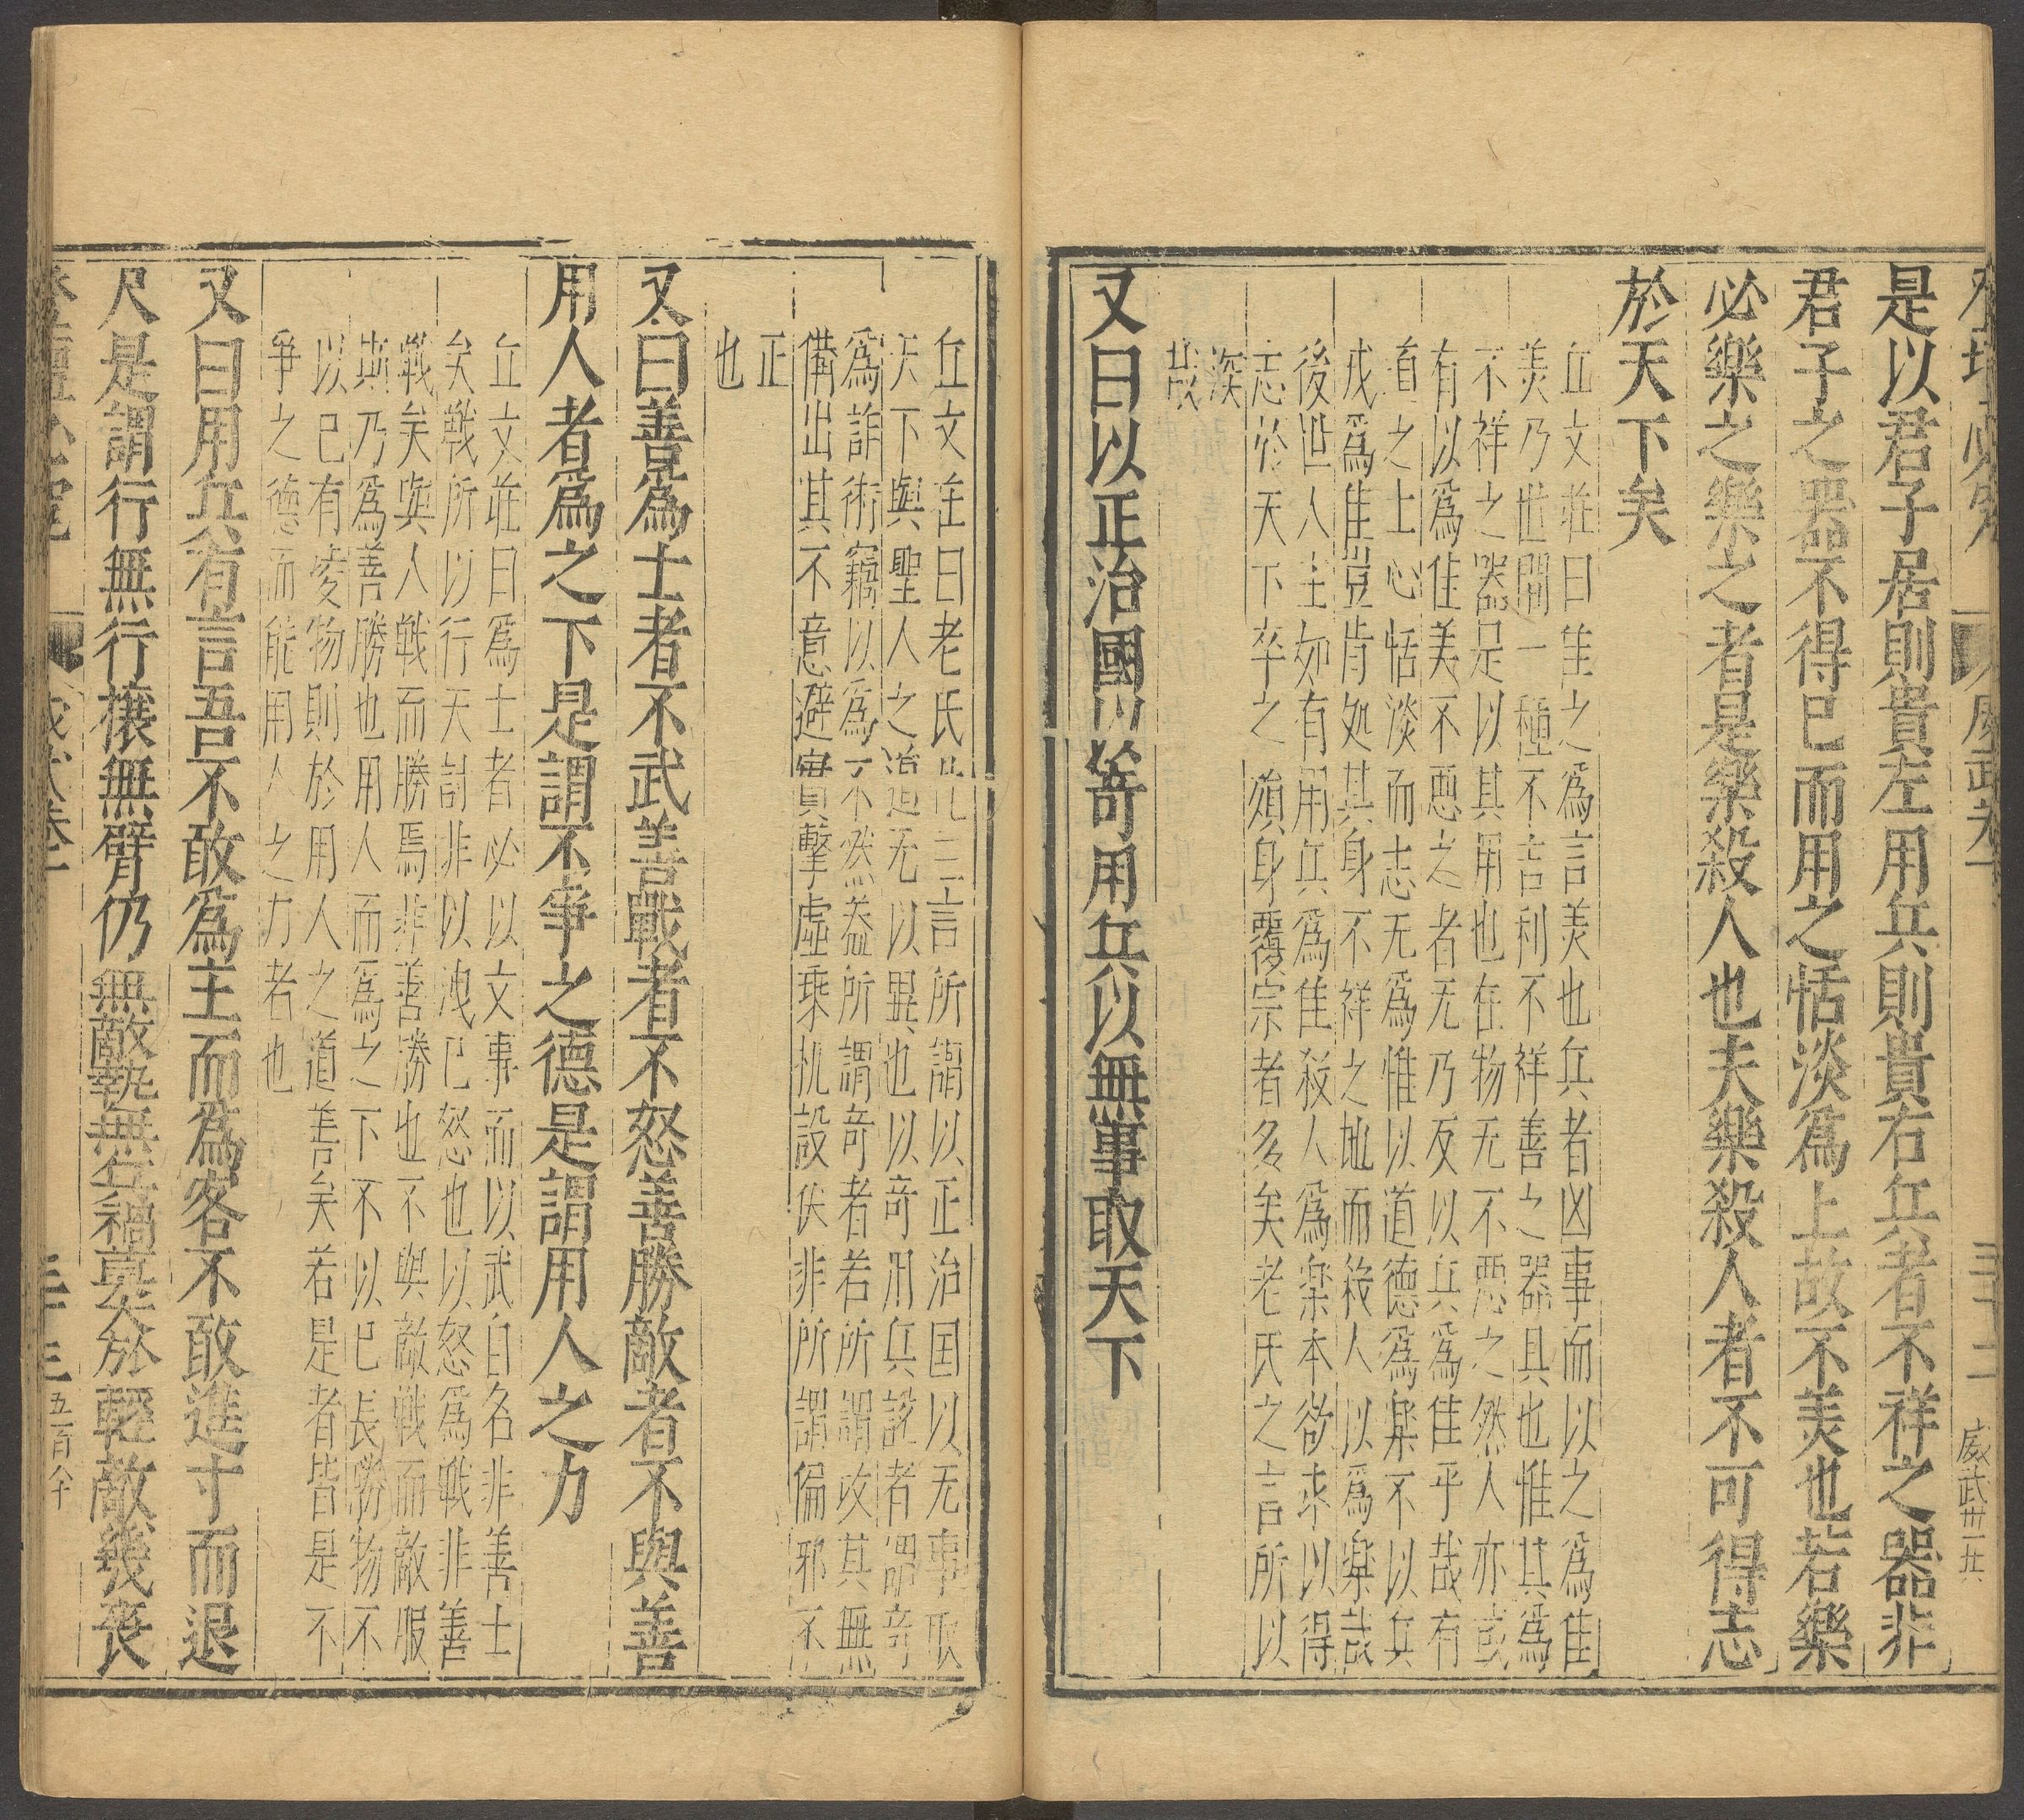 是以君子居則貴左用兵則貴右兵者不祥之器非
君子之器不得已而用之恬淡爲上故不美也若樂
必樂之樂之者是樂殺人也夫樂殺人者不可得志
於天下矣
丘文莊曰佳之爲言美也兵者凶事而以之爲佳
美乃世間一種不吉利不祥善之器具也惟其爲
不祥之器是以其用也在物无不惡之然人亦或
有以爲佳美不惡之者无乃反以兵爲佳乎哉有
道之士心恬淡而志无爲惟以道德爲樂不以兵
戎爲佳豈肯处其身不祥之地而殺人以爲樂哉
後世人主如有用兵爲佳殺人爲樂本欲求以得
志於天下卒之殞身覆宗者多矣老氏之言所以
深
哉
又曰以正治國以竒用兵以無事取天下
丘文莊曰老氏此三言所謂以正治国以无事取
天下與聖人之道无以異也以奇用兵說者謂奇
爲詐術竊以爲不然蓋所謂奇者若所謂攻其無
備出其不意避實擊虛乘机設伏非所謂偏邪不
正
也
又曰善爲士者不武善戰者不怒善勝敵者不與善
用人者爲之下是謂不爭之德是謂用人之力
丘文莊曰爲士者必以文事而以武自名非善士
矣戰所以行天討非以洩已怒也以怒爲戰非善
戰矣與人戰而勝焉非善勝也不與敵戰而敵服
斯乃爲善勝也用人而爲之下不以已長勝物不
以已有凌物則於用人之道善矣若是者皆是不
爭之德而能用人之力者也
又曰用兵有言吾不敢爲主而爲客不敢進寸而退
尺是謂行無行攘無臂仍無敵執無兵禍莫大於輕敵輕敵幾喪
三十三 五百八十